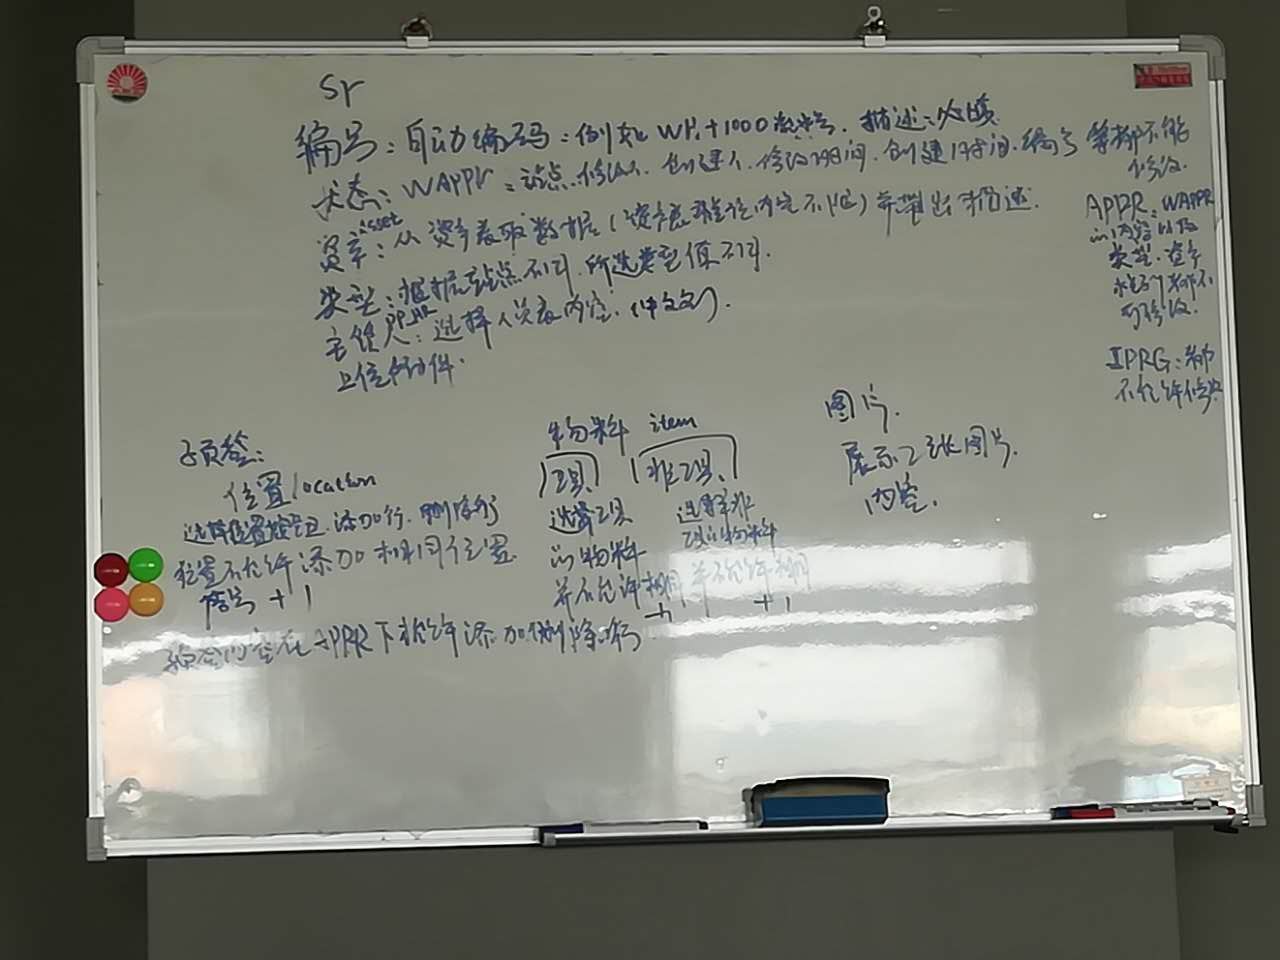 sr
编号：自动编码：例如 WP.+1000 流水号. 描述：必填
状态：WAPPR：站点.修改人.创建人.修改时间.创建时间.编号等都不能修改.
asset
资产：从资产表取数据（ 内容不 ）并带出描述.
类型：根据站点不同.所选类型值不同.
主管人：选择人员表内容.（中文名）.
上传附件.
APPR：WAPPR
的内容以及
类型.资产
都不
可修改.
IPRG：都
不允许修改
子页签：
位置 location
选择位置按钮.添加行.删除行
位置不允许添加相同位置
+1
物料 item
工具
非工具
选择工具
的物料
并不允许相同
+1
选择非
工具的物料
并不允许相同
+1
图片.
展示2张图片
内容.
在APPR下 允许添加删除行